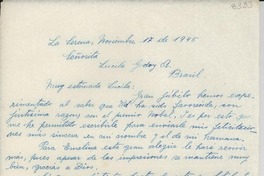 La Serena, Noviembre 17 de 1945
Señorita
Lucila Godoy A.
Brasil
Muy estimada Lucila:
Gran júbilo hemos expe-
rimentado al saber que Ud ha sido favorecida, con
justísima razón, en el premio Nobel, i es por esto que
me he permitido escribirle para enviarle mis felicitacio-
nes más sinceras en mi nombre y el de mi hermana.
Para Emelina esta gran alegría le hará revivir
más, pues apesar de las impresiones se mantiene muy
bien, gracias a Dios.